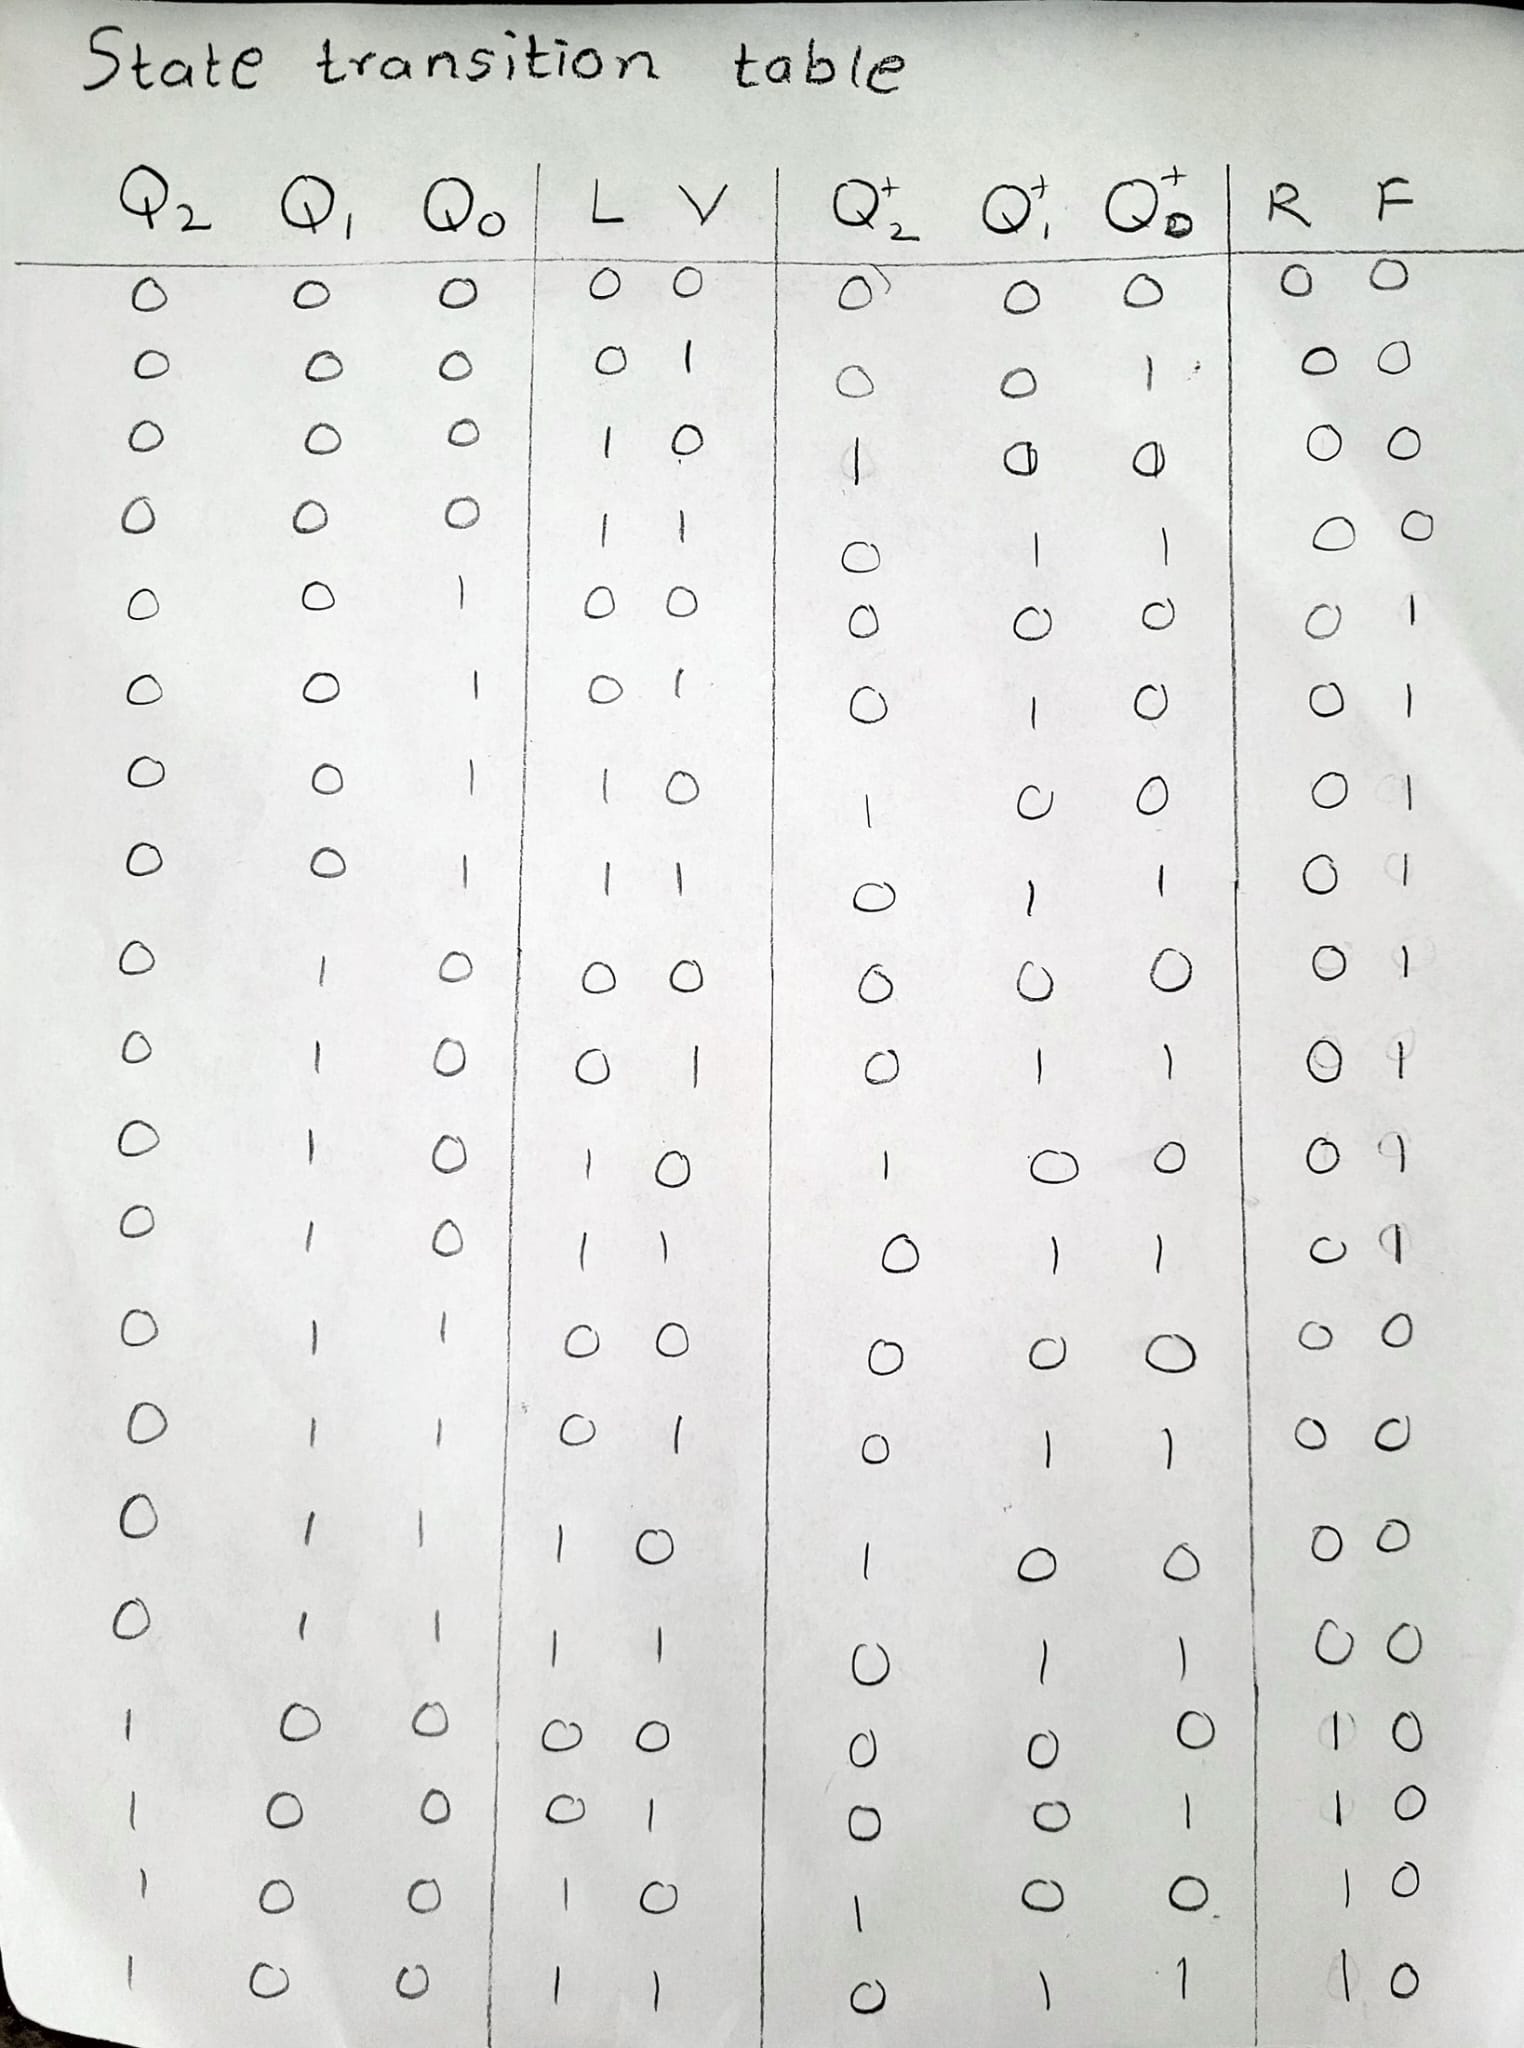 State transition table
Q2 Q1 Q0 L V Q2+ Q1+ Q0+ R F
0 0 0 0 0 0 0 0 0 0
0 0 0 0 1 0 0 1 0 0
0 0 0 1 0 1 0 0 0 0
0 0 0 1 1 0 1 1 0 0
0 0 1 0 0 0 0 0 0 1
0 0 1 0 1 0 1 0 0 1
0 0 1 1 0 1 0 0 0 1
0 0 1 1 1 0 1 1 0 1
0 1 0 0 0 0 0 0 0 1
0 1 0 0 1 0 1 1 0 1
0 1 0 1 0 1 0 0 0 1
0 1 0 1 1 0 1 1 0 1
0 1 1 0 0 0 0 0 0 0
0 1 1 0 1 0 1 1 0 0
0 1 1 1 0 1 0 0 0 0
0 1 1 1 1 0 1 1 0 0
1 0 0 0 0 0 0 0 1 0
1 0 0 0 1 0 0 1 1 0
1 0 0 1 0 1 0 0 1 0
1 0 0 1 1 0 1 1 1 0